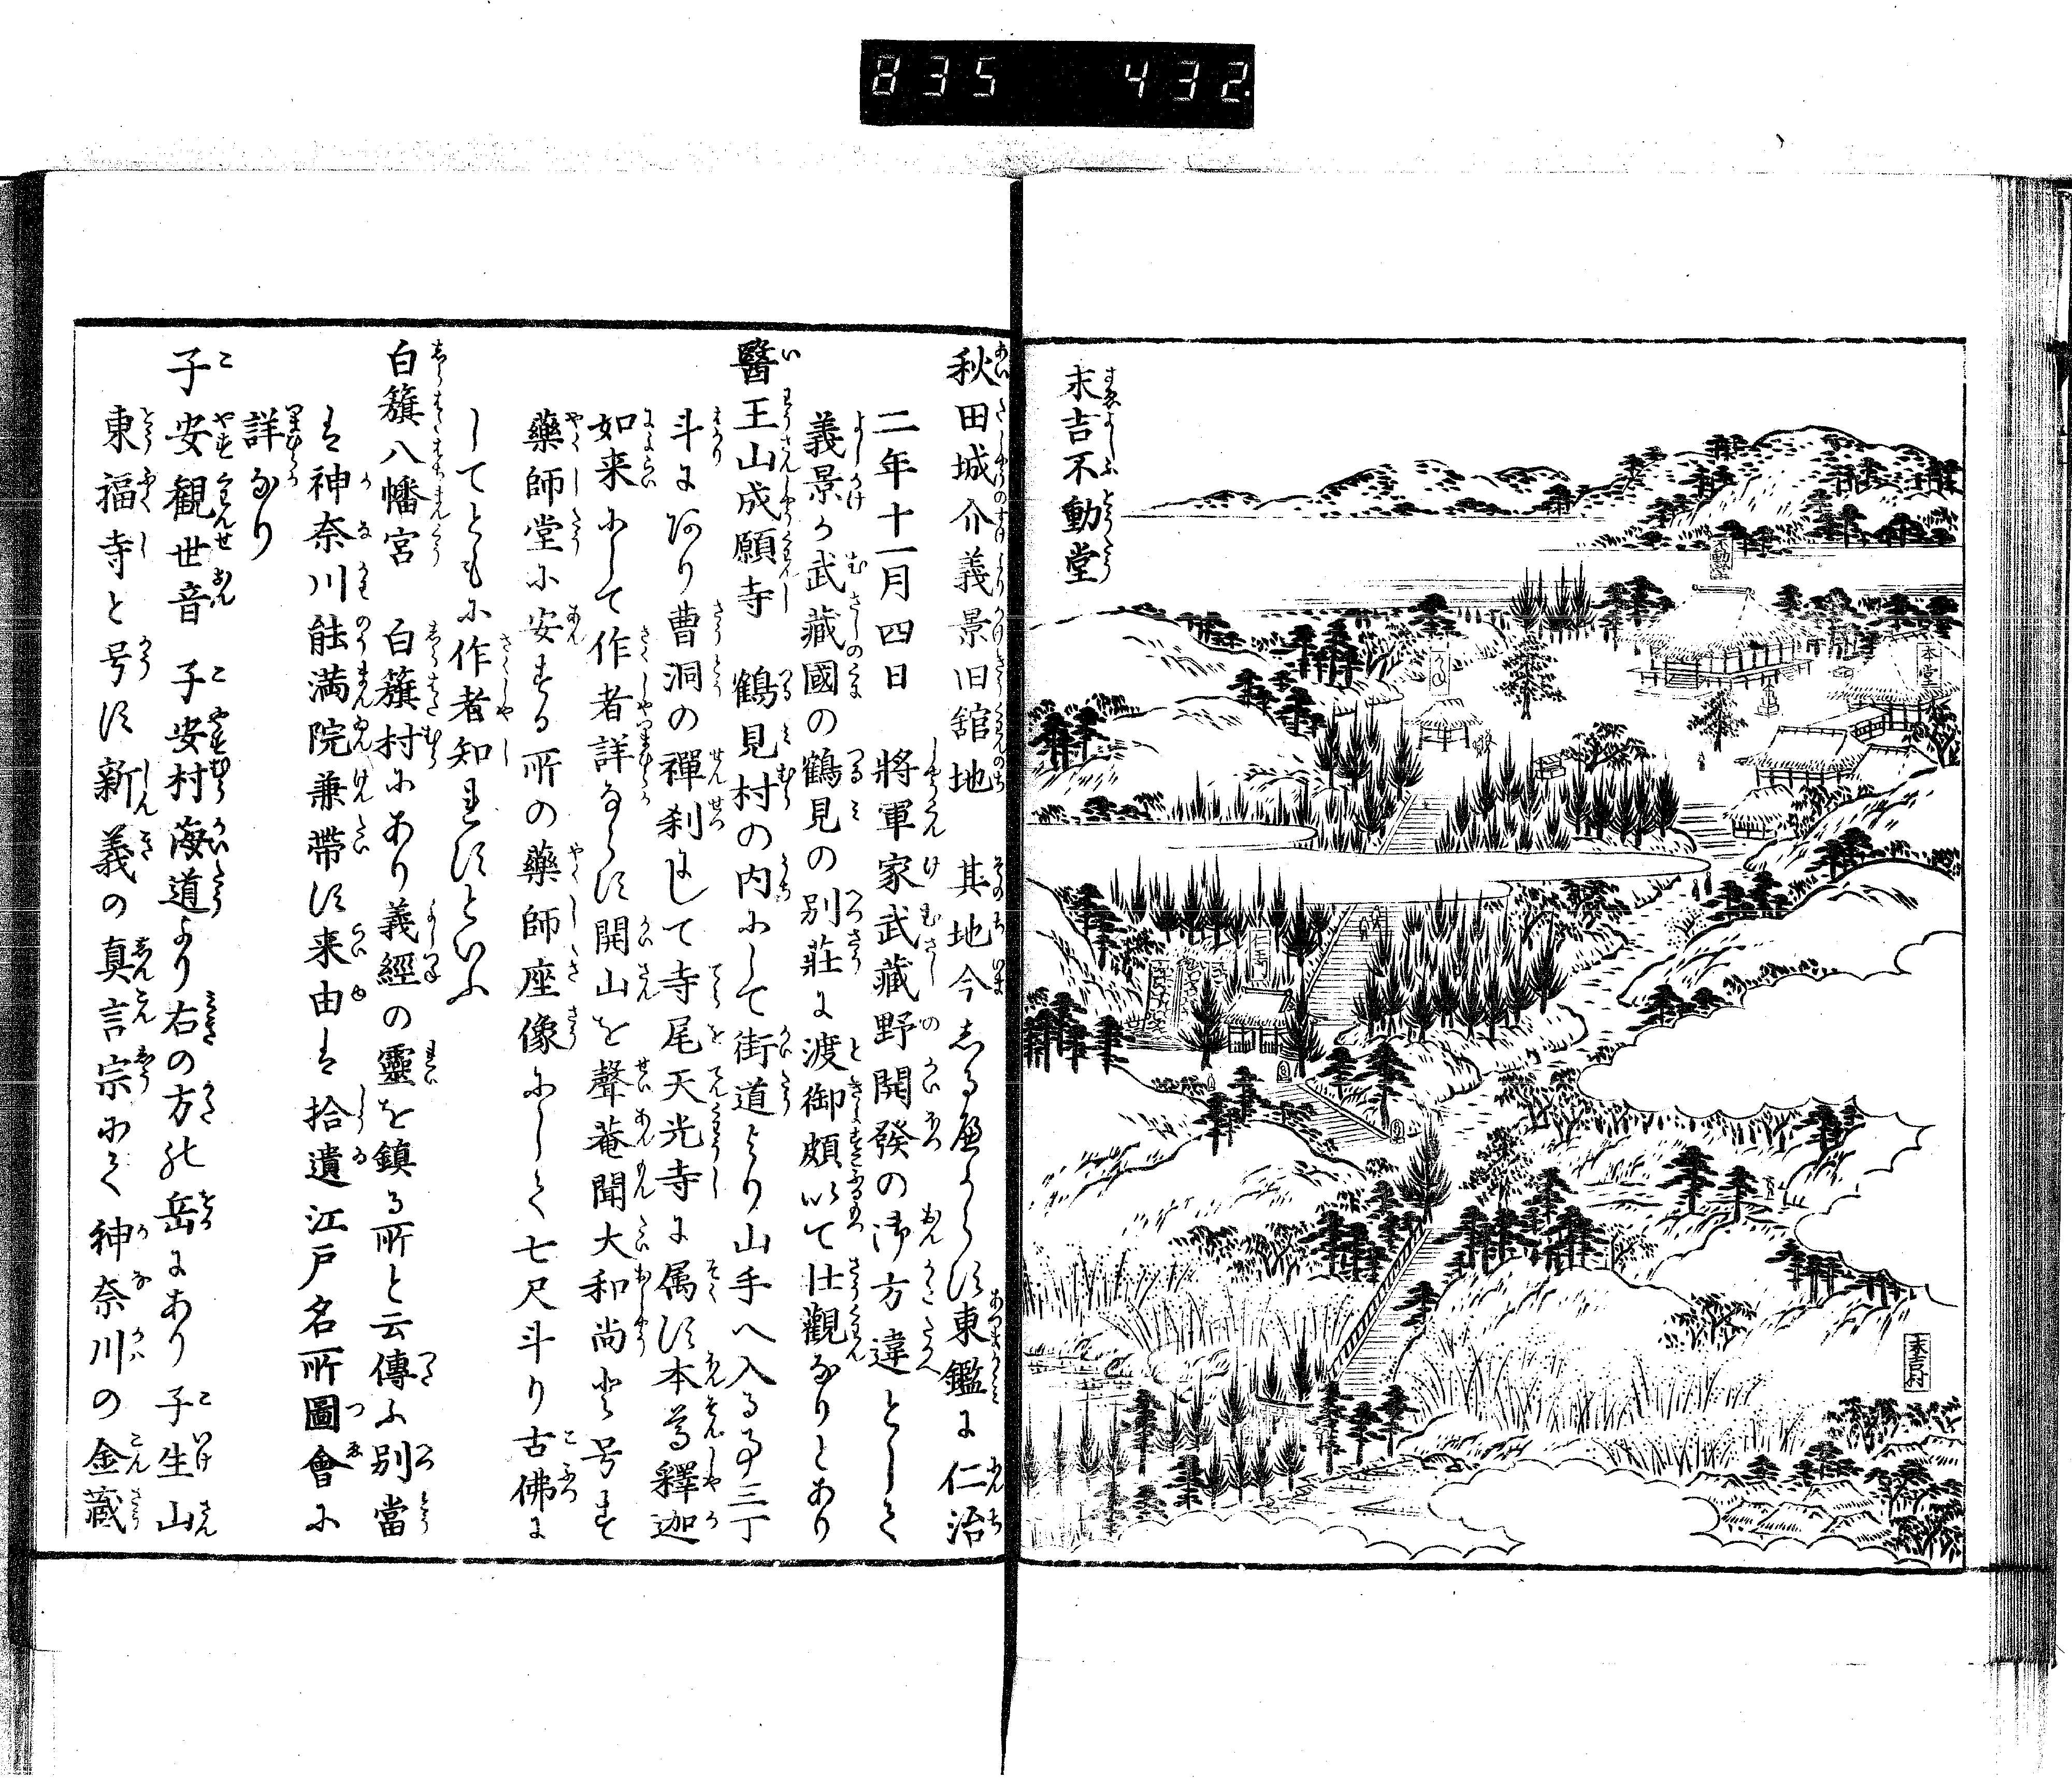 835 432
末吉不動堂
不動堂
本堂
仁王門
末吉村
秋田城介義景旧舘地 其地今志る便よらす東鑑に仁治
二年十一月四日 將軍家武藏野開發の御方違として
義景か武藏國の鶴見の別荘に渡御頗以て壮觀なりとあり
醫王山成願寺 鶴見村の内にして街道より山手へ入る事三丁
斗にあり曹洞の禪刹にして寺尾天光寺に属す本尊釋迦
如来にして作者詳ならす開山を聲菴聞大和尚と号す
藥師堂に安する所の藥師座像にして七尺斗り古佛に
してともに作者知れすといふ
白籏八幡宮 白籏村にあり義經の靈を鎮る所と云傳ふ別當
は神奈川能満院兼帶す来由は拾遺江戸名所圖會に
詳なり
子安観世音 子安村海道より右の方の岳にあり子生山
東福寺と号す新義の真言宗にて神奈川の金蔵